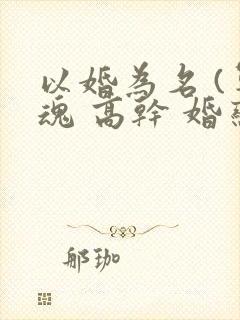 以婚為名(
魂 高幹 婚
郍珈